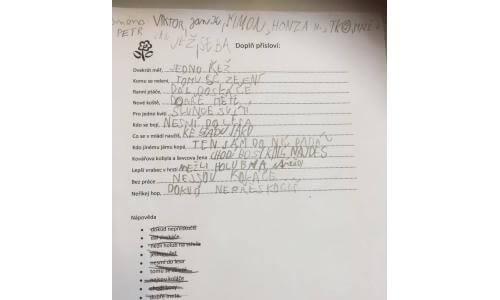 VIKTOR, JANČA, ŠIMON, HONZA
PETR
JEŽ, ŠEBA
Doplň přísloví:
Dvakrát měř, JEDNO ŘEŽ
Komu se nelení, TOMU SE ZELENÍ
Ranní ptáče, DÁL DOSKÁČE
Nové koště, DOBŘE METE
Pro jedno kvítí SLUNCE SVÍTÍ
Kdo se bojí, NESMÍ DO LESA
Co se v mládí naučíš, KE STÁŘÍ JAKO
Kdo jinému jámu kopá, TEN SÁM DO NÍ PADÁ
Kovářova kobyla a ševcova žena CHODÍ BOSY
Lepší vrabec v hrsti NEŽLI HOLUB NA
Bez práce NEJSOU KOLÁČE
Neříkej hop, DOKUD NEPŘESKOČÍŠ
Nápověda
dokud nepřeskočíš
dál doskáče
nežli holub na střeše
jednou řež
nesmí do lesa
tomu se zelení
nejsou koláče
chodí bosy
dobře mete